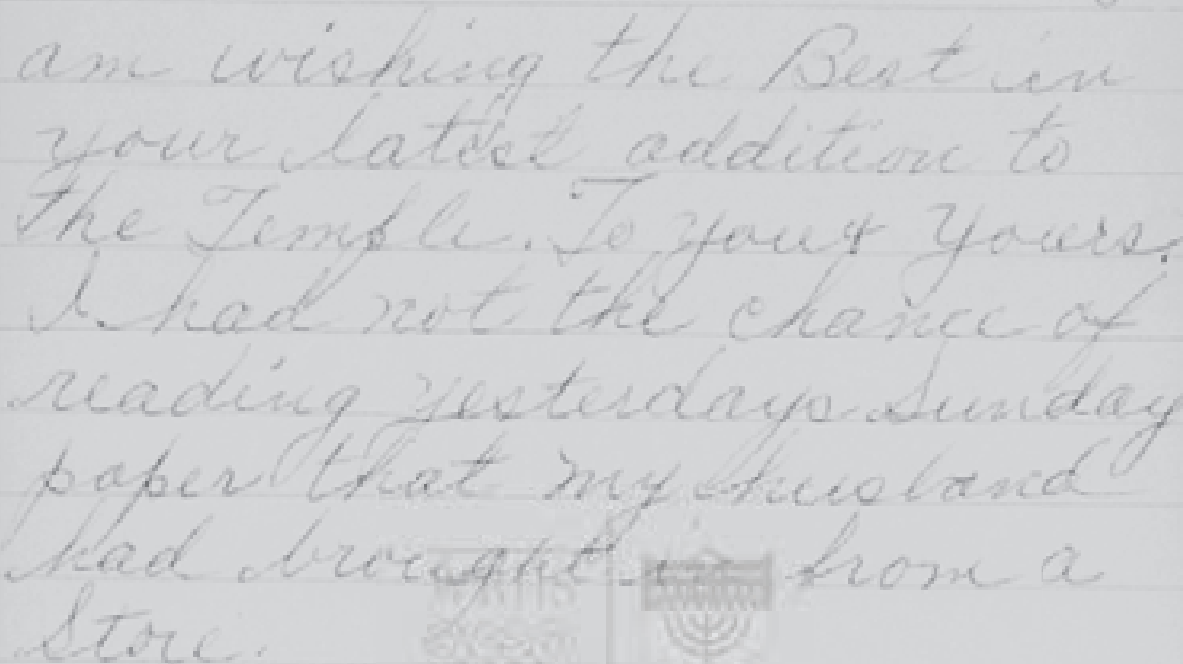 am wishing the Best in
your latest addition to
The Temple. To you & yours.
I had not the chance of
reading yesterdays Sunday
paper that my husband
had brought in from a
Store.